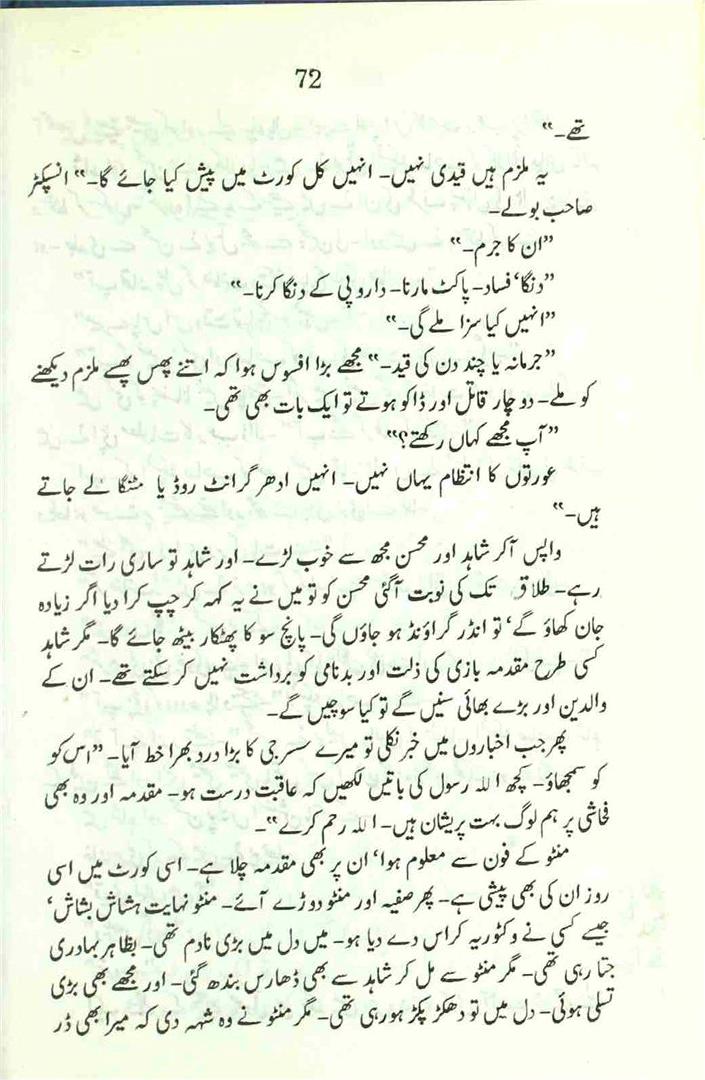 72
تھے۔"
یہ ملزم ہیں قیدی نہیں۔ انہیں کل کورٹ میں پیش کیا جائے گا۔" انسپکٹر
صاحب بولے۔
"ان کا جرم۔"
"دنگا، فساد۔ پاکٹ مارنا۔ دارو پی کے دنگا کرنا۔"
"انہیں کیا سزا ملے گی۔"
"جرمانہ یا چند دن کی قید۔" مجھے بڑا افسوس ہوا کہ اتنے پھس پھسے ملزم دیکھنے
کو ملے۔ دو چار قاتل اور ڈاکو ہوتے تو ایک بات بھی تھی۔
"آپ مجھے کہاں رکھتے؟"
عورتوں کا انتظام یہاں نہیں۔ انہیں ادھر گرانٹ روڈ یا مٹنگا لے جاتے
ہیں۔"
واپس آکر شاہد اور محسن مجھ سے خوب لڑے۔ اور شاہد تو ساری رات لڑتے
رہے۔ طلاق تک کی نوبت آگئی محسن کو تو میں نے یہ کہہ کر چپ کرا دیا اگر زیادہ
جان کھاؤ گے، تو انڈر گراؤنڈ ہو جاؤں گی۔ پانچ سو کا پھٹکار بیٹھ جائے گا۔ مگر شاہد
کسی طرح مقدمہ بازی کی ذلت اور بدنامی کو برداشت نہیں کر سکتے تھے۔ ان کے
والدین اور بڑے بھائی سنیں گے تو کیا سوچیں گے۔
پھر جب اخباروں میں خبر نکلی تو میرے سسر جی کا بڑا درد بھرا خط آیا۔ "اس کو
کو سمجھاؤ۔ کچھ اللہ رسول کی باتیں لکھیں کہ عاقبت درست ہو۔ مقدمہ اور وہ بھی
فحاشی پر ہم لوگ بہت پریشان ہیں۔ اللہ رحم کرے"۔
منٹو کے فون سے معلوم ہوا، ان پر بھی مقدمہ چلا ہے۔ اسی کورٹ میں اسی
روز ان کی بھی پیشی ہے۔ پھر صفیہ اور منٹو دوڑے آئے۔ منٹو نہایت ہشاش بشاش،
جیسے کسی نے وکٹوریہ کراس دے دیا ہو۔ میں دل میں بڑی نادم تھی۔ بظاہر بہادری
جتا رہی تھی۔ مگر منٹو سے مل کر شاہد سے بھی ڈھارس بندھ گئی۔ اور مجھے بھی بڑی
تسلی ہوئی۔ دل میں تو دھکڑ پکڑ ہو رہی تھی۔ مگر منٹو نے وہ شہہ دی کہ میرا بھی ڈر